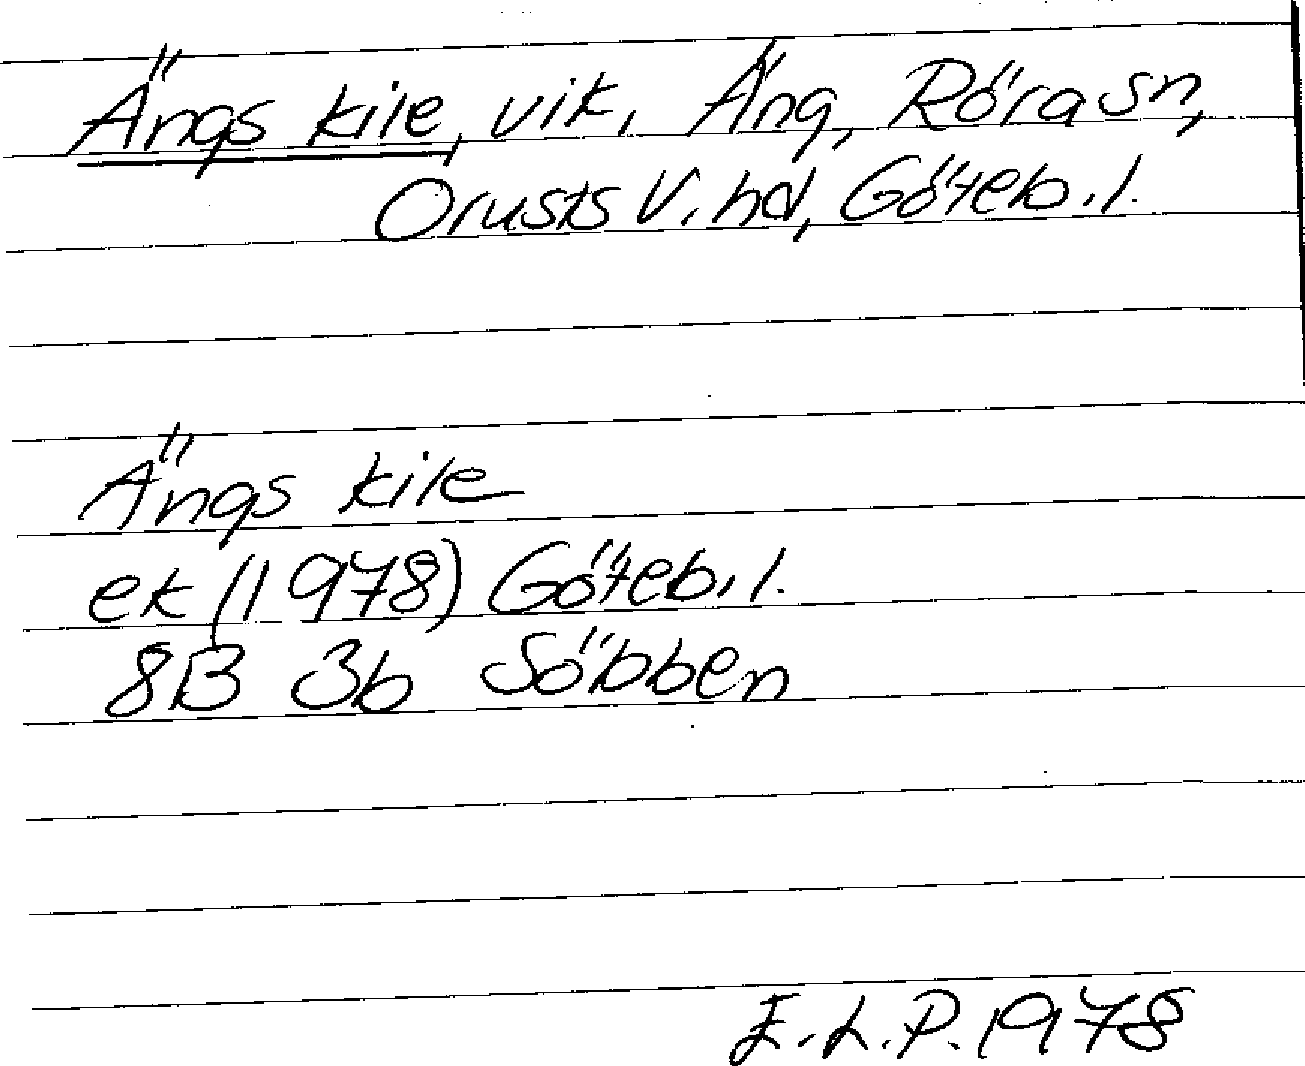 Ängs kile, vik, Äng, Röra sn,
Orusts V. hd, Göteb. l.
Ängs kile
ek (1978) Göteb. l.
8B 3b Söbben
E.L.P. 1978